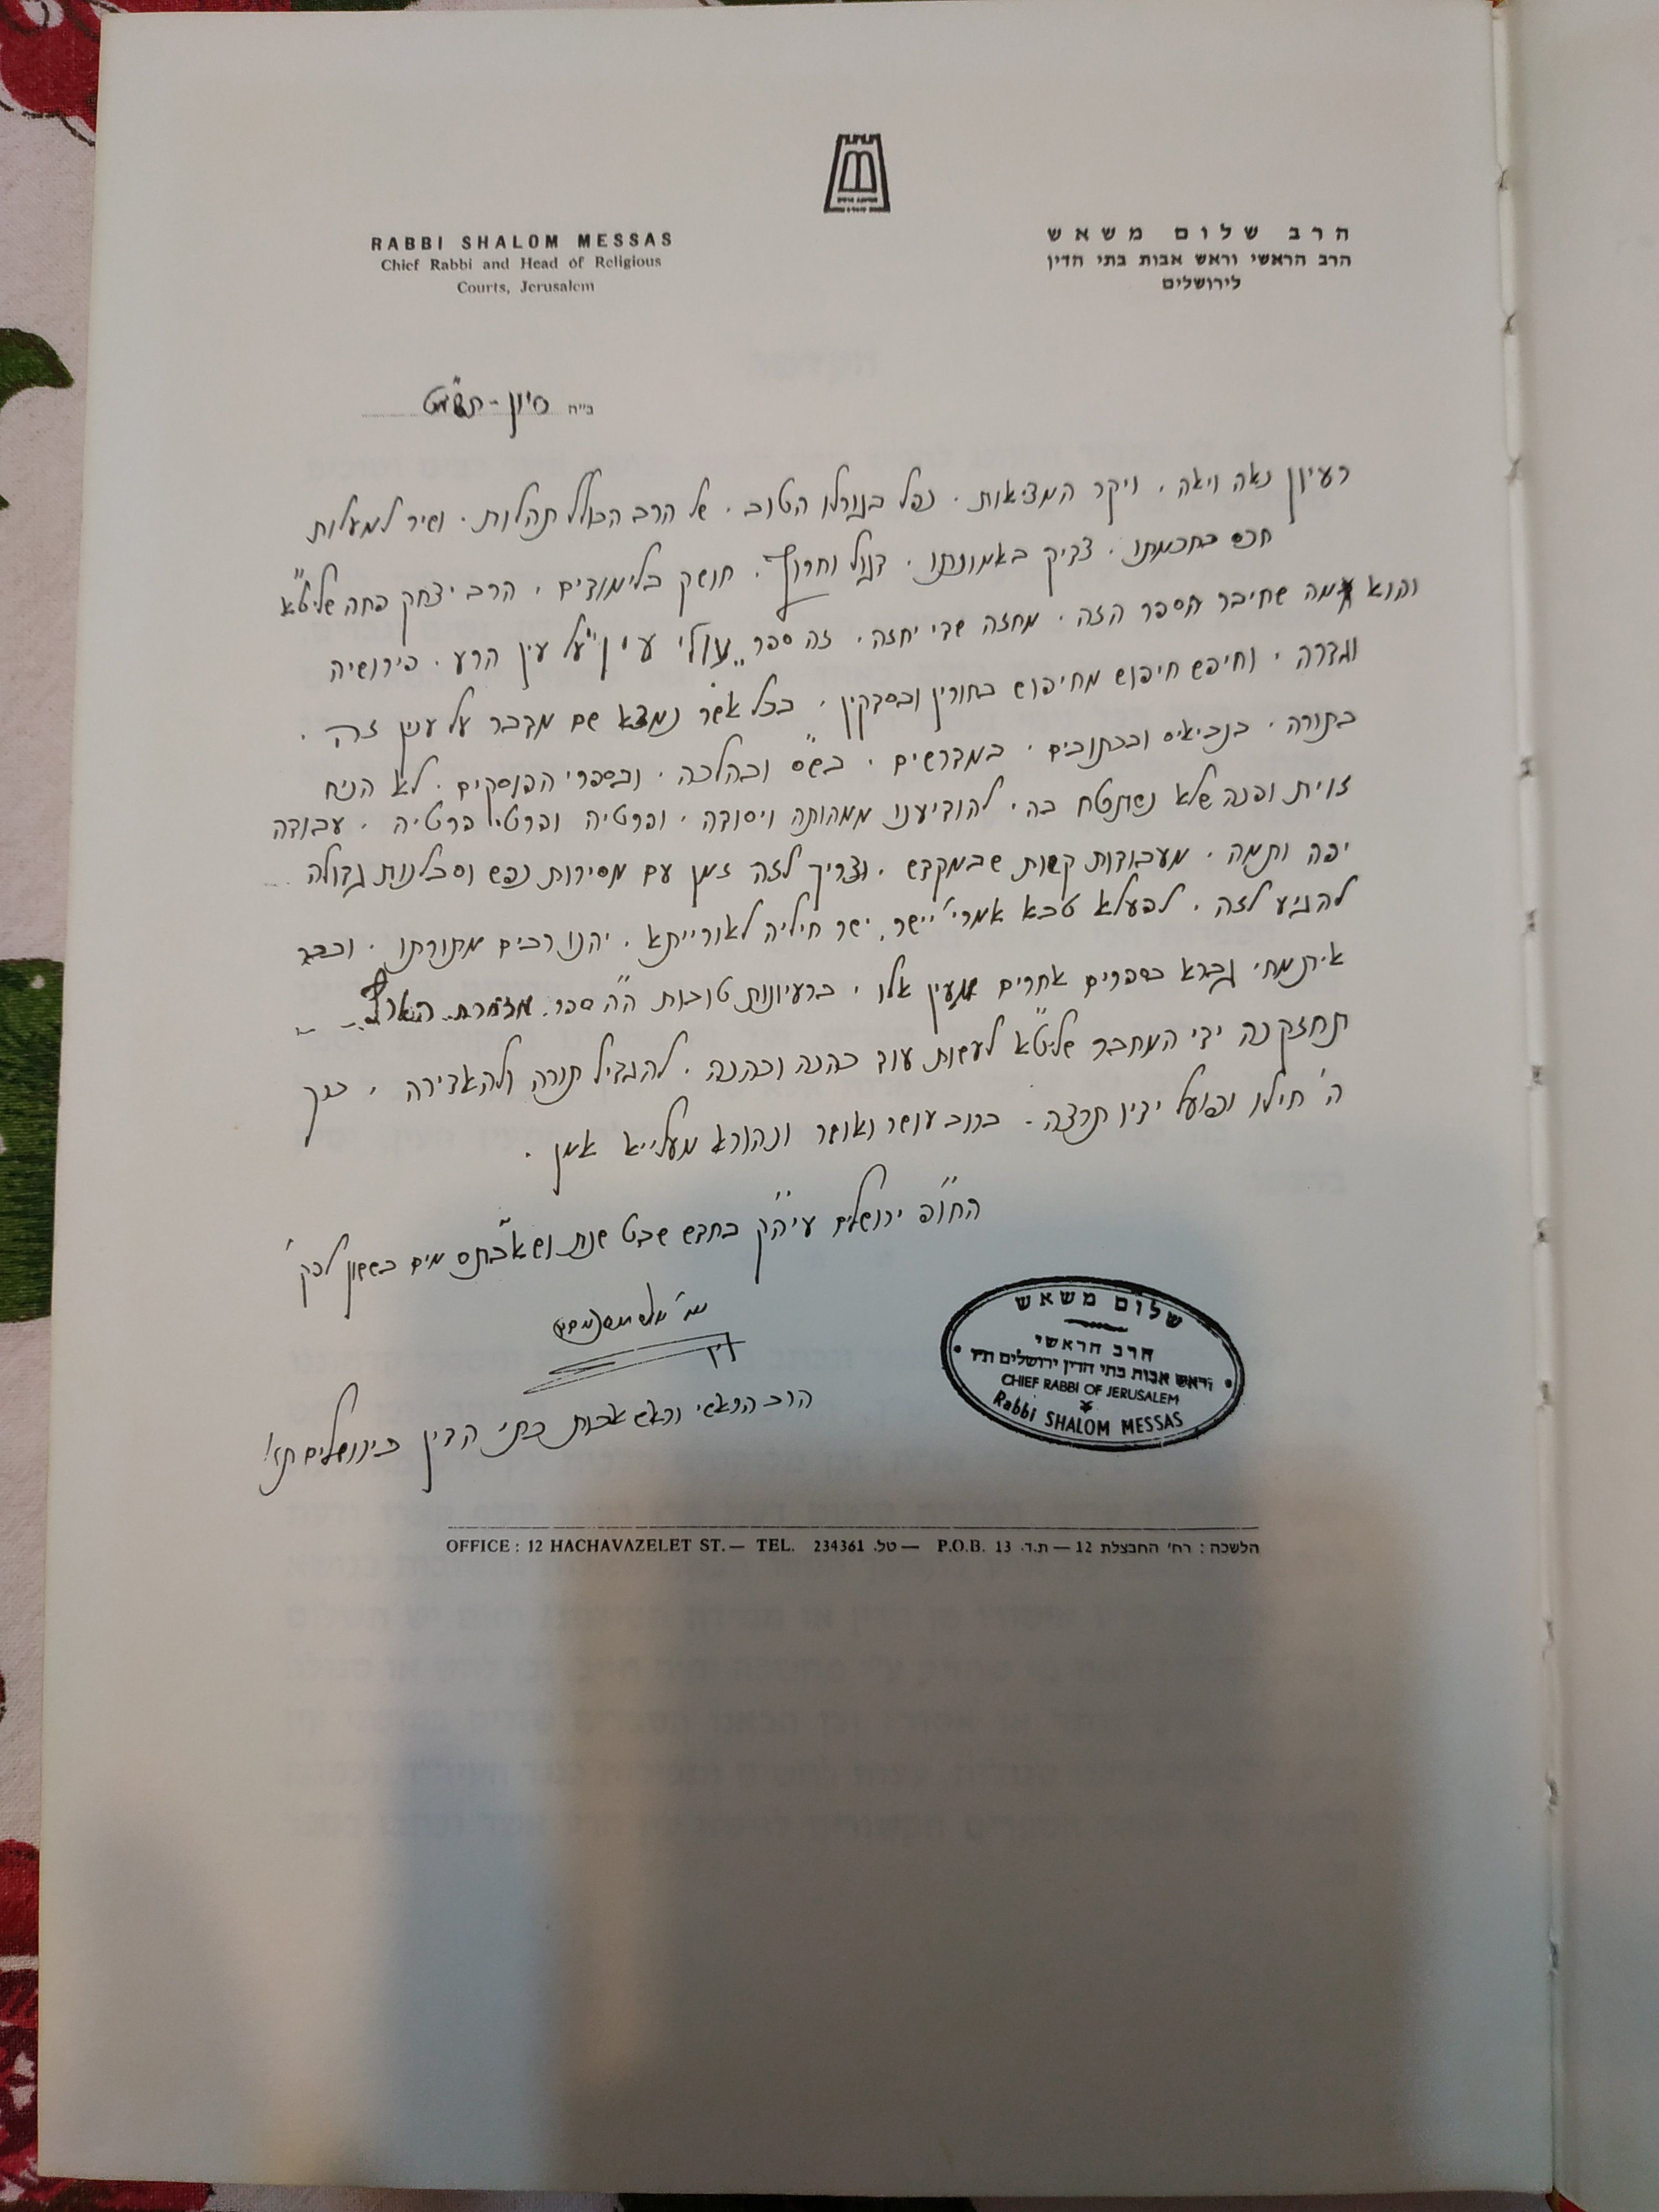 הרב שלום משאש
הרב הראשי וראש אבות בתי הדין
לירושלים
RABBI SHALOM MESSAS
Chief Rabbi and Head of Religious
Courts, Jerusalem
ב״ה סיון -
רעיון נאה ויאה. ויקר המציאות. נפל בגורלו הטוב. של הרב הכולל תהלות. ושיר למעלות
חכם בחכמתו. צדיק באמונתו. דגול וחרוץ. חושק בלימודים. הרב יצחק פחה שליט״א
והוא מה שחיבר הספר הזה. מחזה שדי יחזה. זה ספר „עולי עין" על עין הרע. פירושיה
וגדרה. וחיפש חיפוש מחיפוש בחורין ובסדקין. בכל אשר נמצא שם מדבר על ענין זה.
בתורה. בנביאים ובכתובים. במדרשים. בש״ס ובהלכה. ובספרי הפוסקים. לא הניח
זוית ופנה שלא נשתטח בה. להודיענו ממהותה ויסודה. ופרטיה ופרטי פרטיה. עבודה
יפה ותמה. מעבודות קשות שבמקדש. וצריך לזה זמן עם מסירות נפש וסבלנות גדולה
להגיע לזה. לפעלא טבא אמרי׳ יישר. ישר חיליה לאורייתא. יהנו רבים מתורתו. וכבר
איתמחי גברא בספרים אחרים מעין אלו. ברעיונות טובות ה״ה ספר מזמרת הארץ
תחזקנה ידי המחבר שליט״א לעשות עוד כהנה וכהנה. להגדיל תורה ולהאדירה. ברך
ה׳ חילו ופועל ידיו תרצה. ברוב עושר ואושר ונהורא מעלייא אמן.
החו״פ ירושלים עיה״ק בחדש שבט שנת ושאבתם מים בששון לפ״ק
הרב הראשי וראש אבות בתי הדין בירושלים ת״ו
שלום משאש
הרב הראשי
וראש אבות בתי הדין ירושלים ת״ו
CHIEF RABBI OF JERUSALEM
Rabbi SHALOM MESSAS
OFFICE : 12 HACHAVAZELET ST. — TEL. 234361 טל. — P.O.B. 13 ת.ד. — הלשכה : רח׳ החבצלת 12